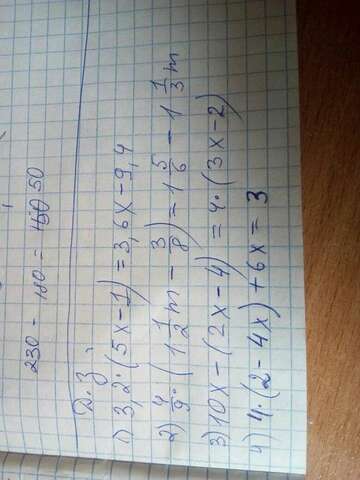 230 - 180 = 50
Д.З.
1) 3,2·(5x-1) = 3,6x-9,4
2) 4/9·(1 1/2 m - 3/8) = 1 5/6 - 1 1/3 m
3) 10x-(2x-4) = 4·(3x-2)
4) 4·(2-4x)+6x = 3